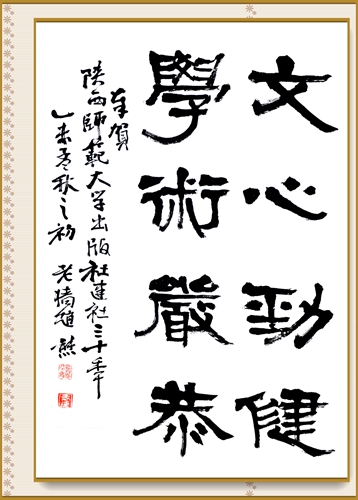 文心勁健
學術嚴恭
奉賀
陕西師範大学出版社建社三十年
乙未孟秋之初 老墙趙熊